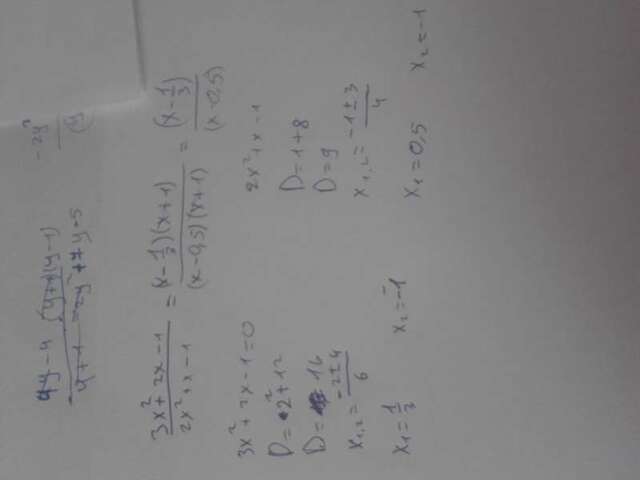 3x² + 2x - 1 / 2x² + x - 1 = (x - 1/3)(x + 1) / (x - 0,5)(x + 1) = (x - 1/3) / (x - 0,5)
3x² + 2x - 1 = 0
D = 2² + 12
D = 16
x₁,₂ = -2 ± 4 / 6
x₁ = 1/2 x₂ = -1
2x² + x - 1
D = 1 + 8
D = 9
x₁,₂ = -1 ± 3 / 4
x₁ = 0,5 x₂ = -1